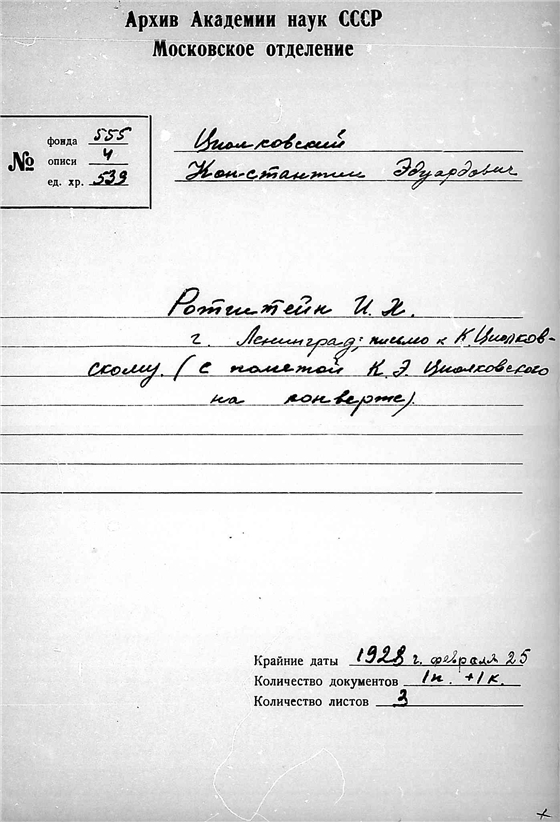 Архив Академии наук СССР
Московское отделение
№
фонда 555
описи 4
ед. хр. 539
Циолковский
Константин Эдуардович
Ротштейн И. Х.
г. Ленинград; письмо к К. Циолков-
скому. (с пометой К. Э. Циолковского
на конверте).
Крайние даты 1928 г. февраля 25
Количество документов 1п. +1к.
Количество листов 3